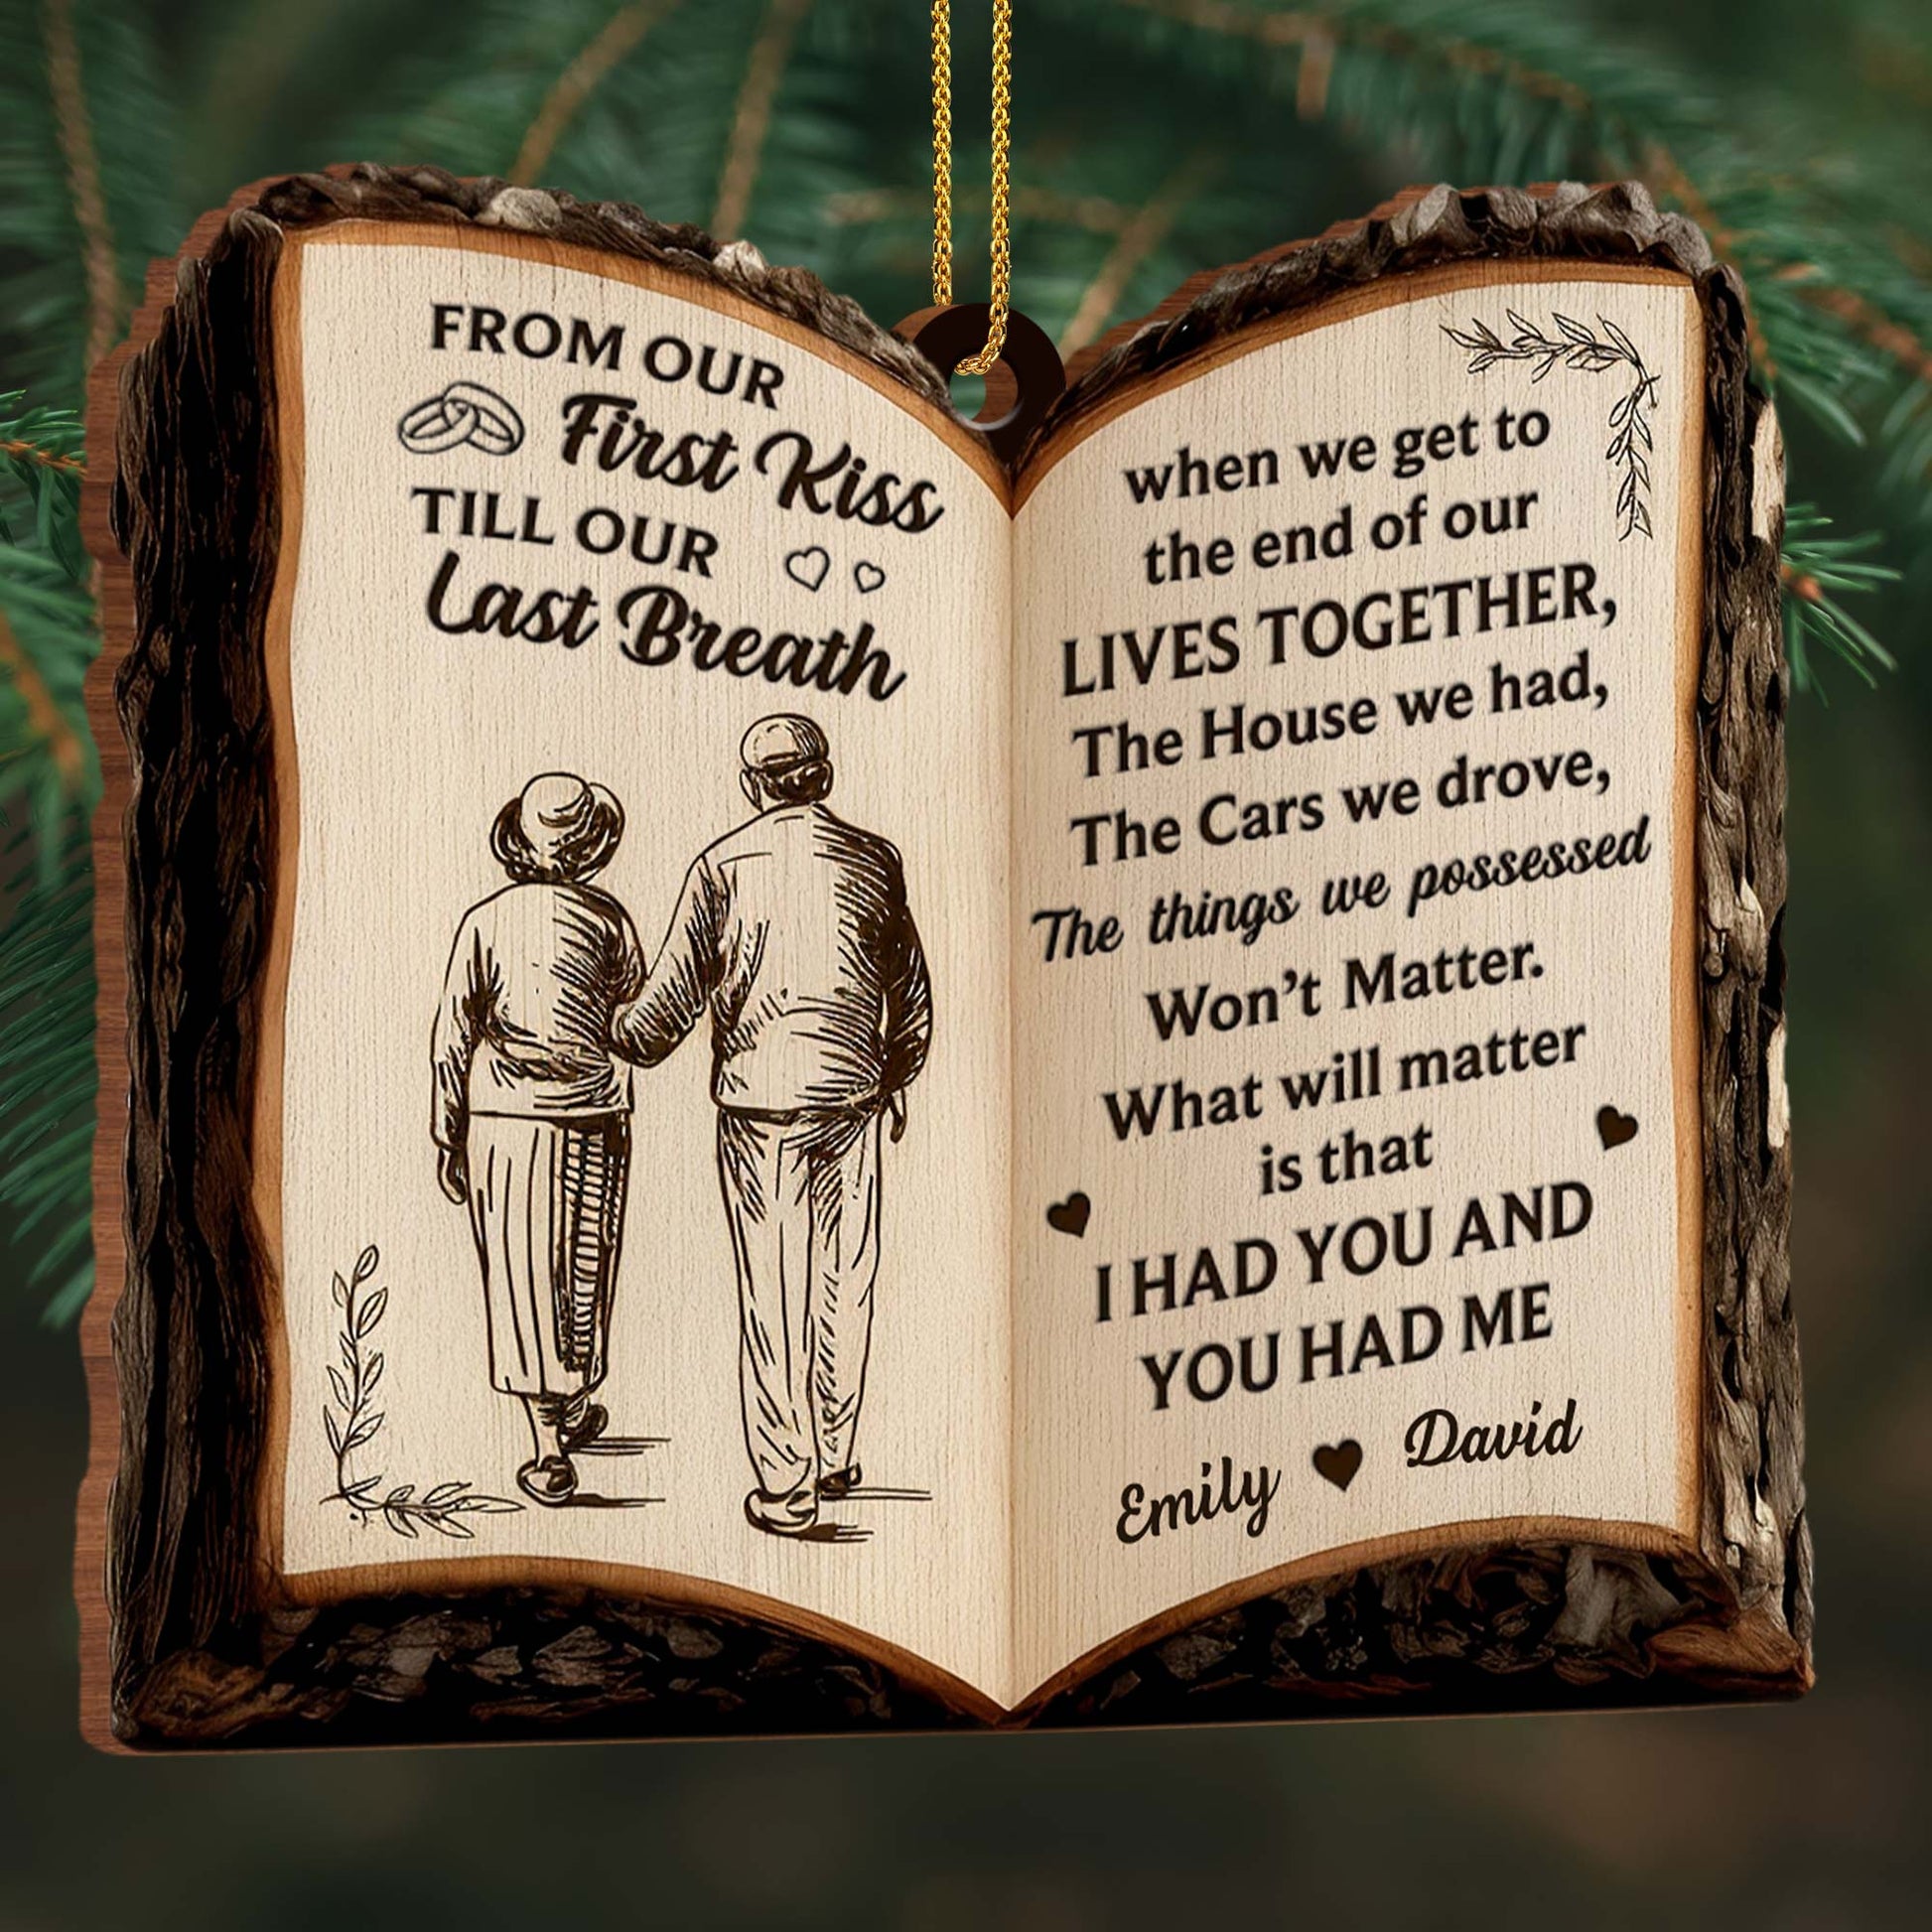 FROM OUR
First Kiss
TILL OUR
Last Breath
when we get to
the end of our
LIVES TOGETHER,
The House we had,
The Cars we drove,
The things we possessed
Won't Matter.
What will matter
is that
I HAD YOU AND
YOU HAD ME
Emily David